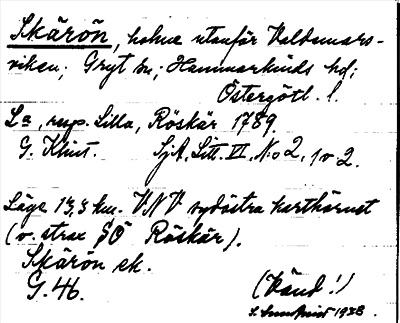 Skärön, holme utanför Valdemars-
viken; Gryt sn; Hammarkinds hd;
Östergötl. l.
La, resp. Lilla, Röskär 1789.
G. Klint. SjA, Litt. VI, No 2, 1 o 2.
Läge 13,3 km. VNV sydöstra karthörnet
(o. strax SÖ Röskär).
Skärön ek.
G. 46. (Vänd!)
1938